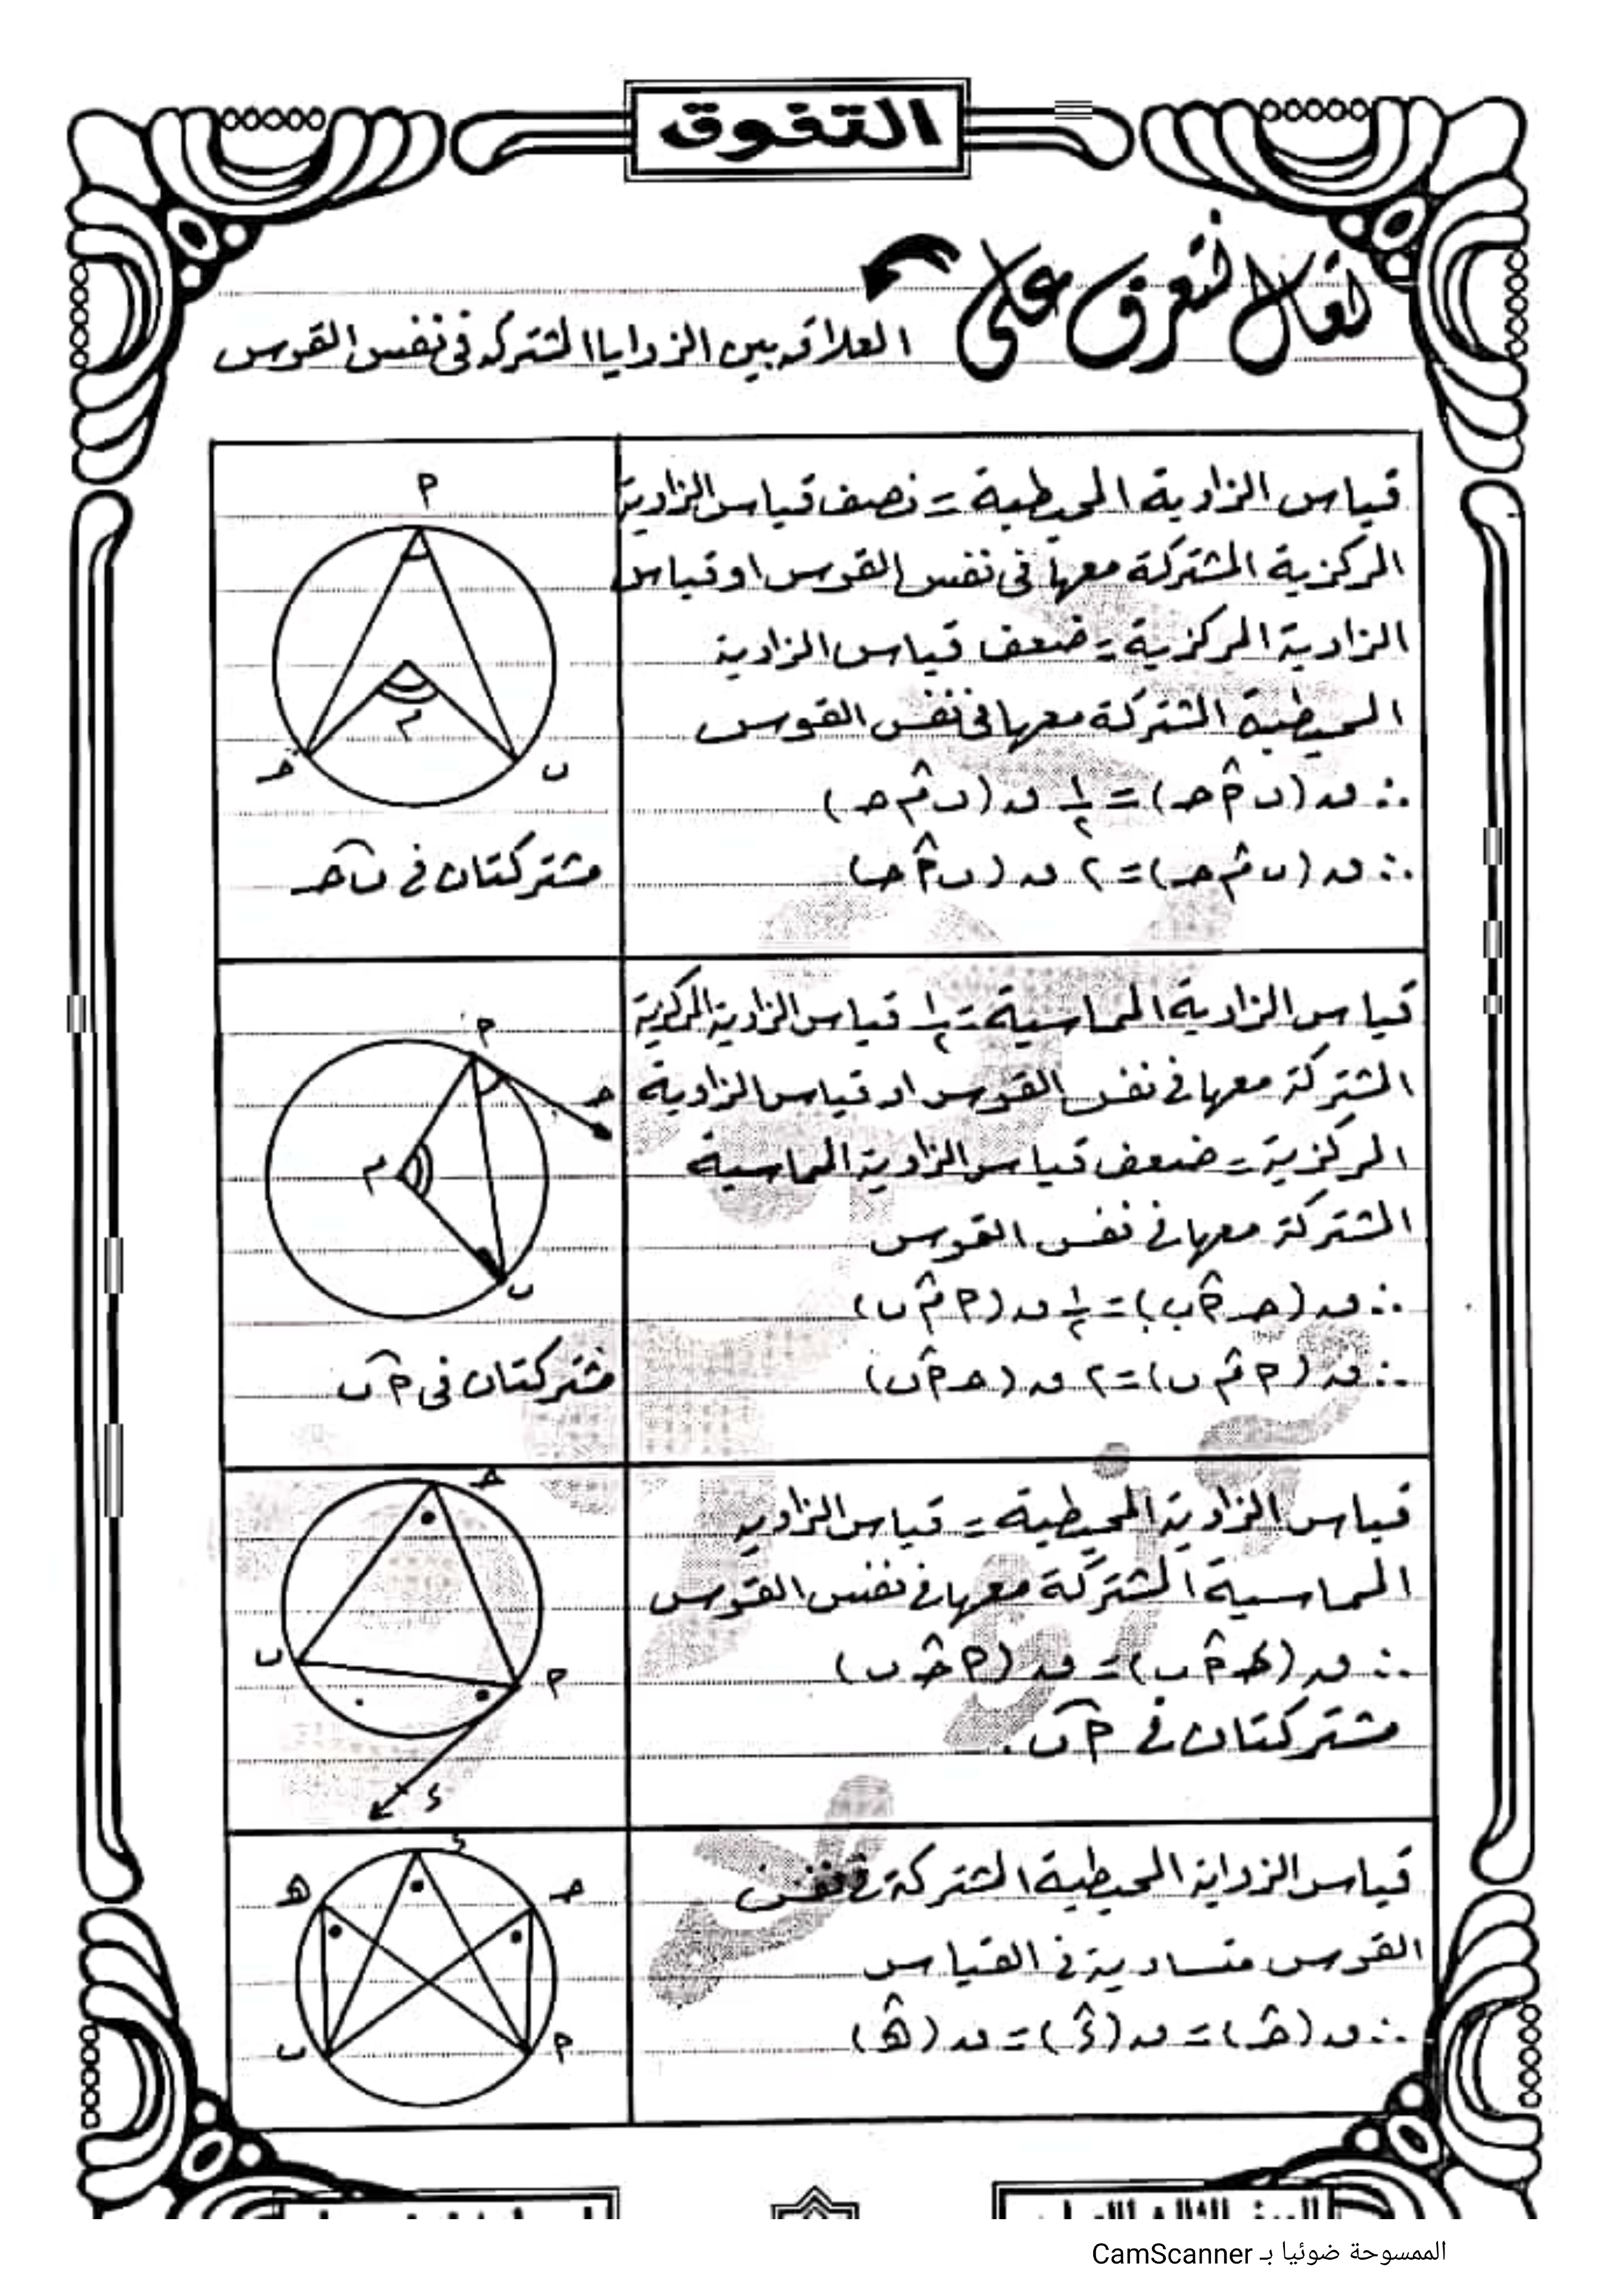 التفوق
تعال نتعرف على
العلاقه بين الزوايا المشتركه فى نفس القوس
قياس الزاوية المحيطية = نصف قياس الزاوية
المركزية المشتركة معها فى نفس القوس او قياس
الزاوية المركزية = ضعف قياس الزاوية
المحيطية المشتركة معها فى نفس القوس
∴ ق (ب م̂ حـ) = ١/٢ ق (ب م̂ حـ)
∴ ق (ب م̂ حـ) = ٢ ق (ب أ̂ حـ)
أ
م
حـ
ب
مشتركتان فى ب حـ
قياس الزاوية المماسية = ١/٢ قياس الزاوية المركزية
المشتركة معها فى نفس القوس او قياس الزاوية
المركزية = ضعف قياس الزاوية المماسية
المشتركة معها فى نفس القوس
∴ ق (حـ أ̂ ب) = ١/٢ ق (أ م̂ ب)
∴ ق (أ م̂ ب) = ٢ ق (حـ أ̂ ب)
أ
حـ
م
ب
مشتركتان فى أ ب
قياس الزاوية المحيطية = قياس الزاوية
المماسية المشتركة معها فى نفس القوس
∴ ق (ء أ̂ ب) = ق (أ حـ̂ ب)
مشتركتان فى أ ب
حـ
ب
أ
ء
قياس الزواية المحيطية المشتركة فى نفس
القوس متساوية فى القياس
∴ ق (حـ̂) = ق (ء̂) = ق (هـ̂)
ء
هـ
حـ
ب
أ
الممسوحة ضوئيا بـ CamScanner